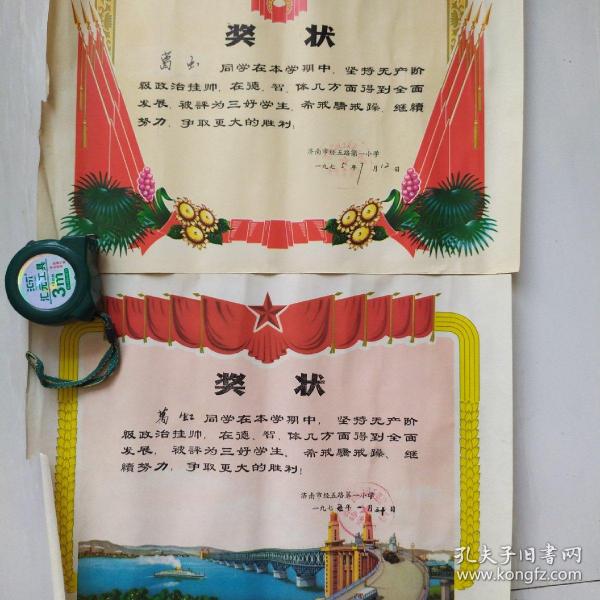 奖状
葛玉 同学在本学期中，坚持无产阶
级政治挂帅，在德、智、体几方面得到全面
发展，被評为三好学生，希戒驕戒躁、继續
努力，争取更大的胜利！
济南市经五路第一小学
一九七5年7月12日
汇元工具
3m
奖状
葛虹 同学在本学期中，坚持无产阶
级政治挂帅，在德、智、体几方面得到全面
发展，被評为三好学生，希戒驕戒躁、继
續努力，争取更大的胜利！
济南市经五路第一小学
孔夫子旧书网
www.kongfz.com